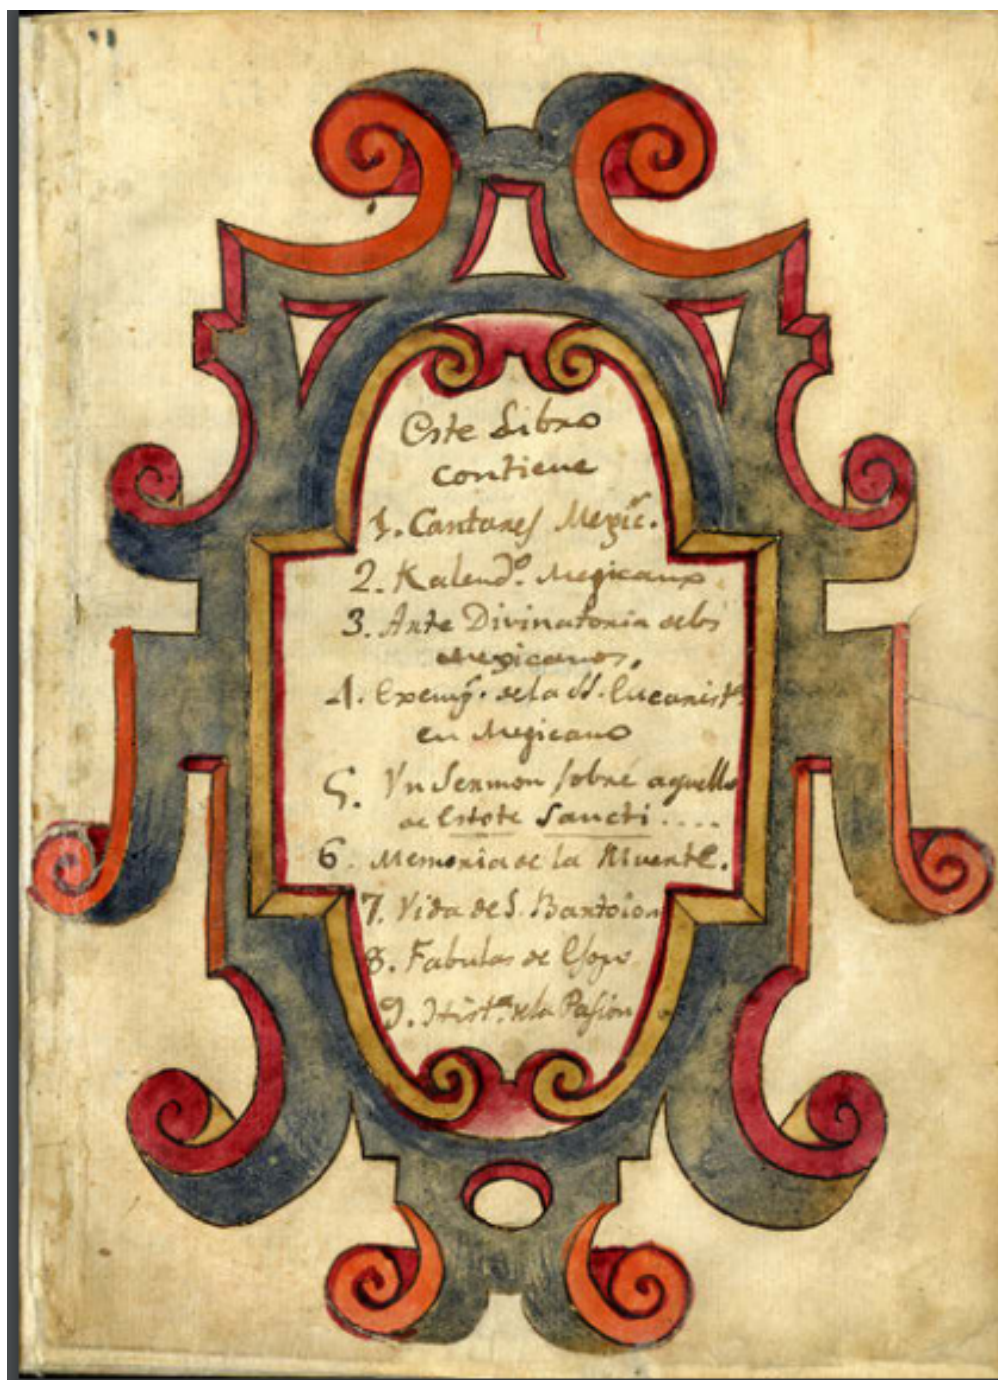 Este Libro
contiene
1. Cantares Megic.ˢ
2. Kalend.º Megicano
3. Arte Divinatoria delos
Megicanos,
4. Exemp.ˢ de la SS. Eucarist.ª
en Megicano
5. Vn Sermon sobre aquello
de Estote Sancti ....
6. Memoria de la Muerte.
7. Vida de S. Bartolom
8. Fabulas de Esopo
9. Hist.ª de la Pasion